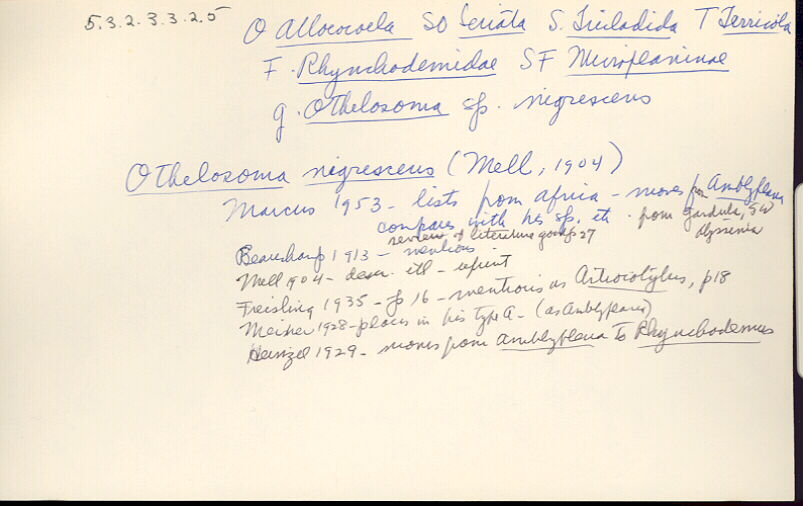 5.3.2.3.3.2.5
O Allococoela SO Seriata S. Tricladida T Terricola
F. Rhynchodemidae SF Microplaninae
g. Othelosoma sp. nigrescens
Othelosoma nigrescens (Mell, 1904)
Marcus 1953 - lists from africa - moves from Amblyplana
compares with his sp. etc. from Gardula, SW Abyssenia
review of literature good p27
Beauchamp 1913 - mentions
Mell 1904 - descr. ill - reprint
Freisling 1935 - p 16 - mentions as Artiocotylus, p18
Meixner 1928 - places in his type A - (as Amblyplana)
Heinzel 1929 - moves from Amblyplana to Rhynchodemus